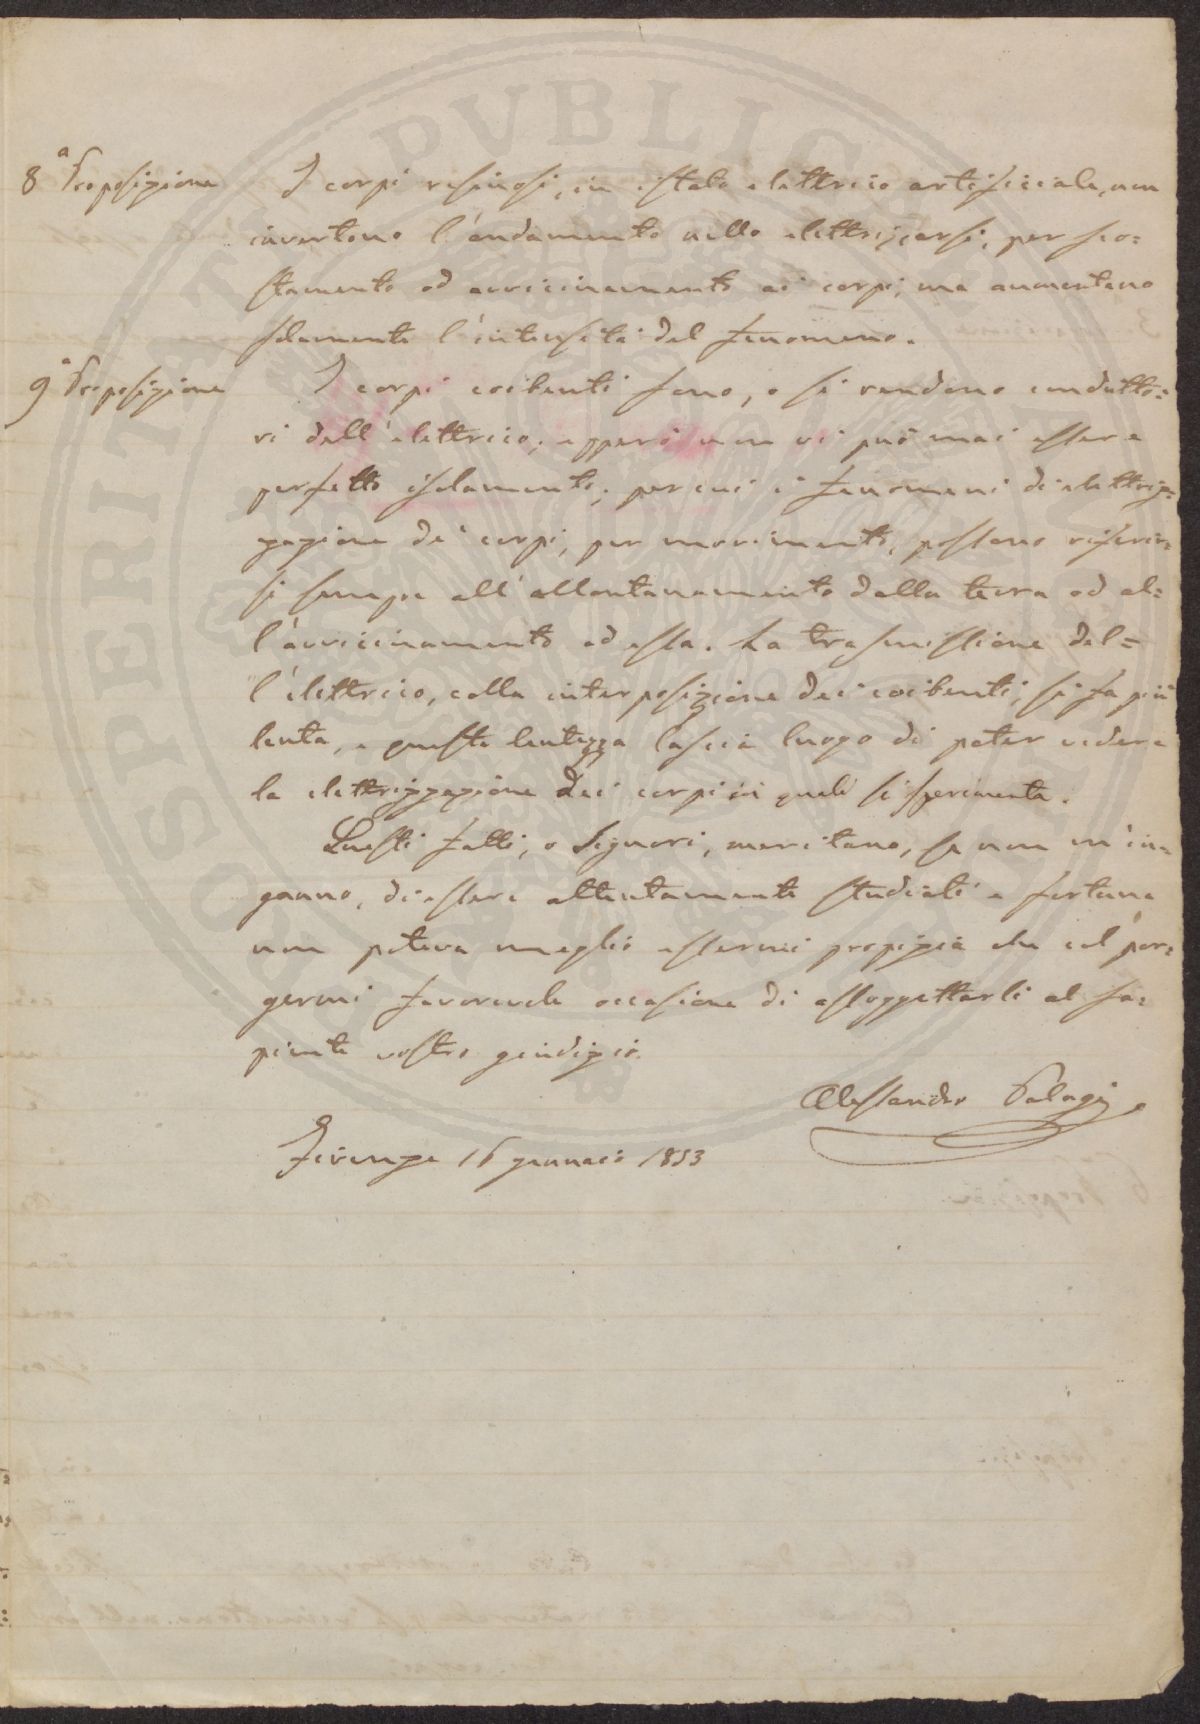 8ª Proposizione I corpi resinosi, in istato elettrico artificiale, non
invertono l'andamento nello elettrizzarsi, per sco=
stamento od avvicinamento ai corpi, ma aumentano
solamente l'intensità del fenomeno.
9ª Proposizione I corpi coibenti sono, o si rendono condutto=
ri dell'elettrico; epperò non vi può mai essere
perfetto isolamento; per cui i fenomeni di elettriz=
zazione de' corpi, per movimento, possono riferir=
si sempre all'allontanamento dalla terra od al=
l'avvicinamento ad essa. La trasmissione del=
l'elettrico, colla interposizione dei coibenti, si fa più
lenta, e questa lentezza lascia luogo di poter vedere
la elettrizzazione dei corpi sui quali si sperimenta.
Questi fatti, o Signori, meritano, se non m'in=
ganno, di essere attentamente studiati e fortuna
non poteva meglio essermi propizia che col por=
germi favorevole occasione di assoggettarli al sa=
piente vostro giudizio.
Alessandro Palagi
Firenze 16 gennaio 1853